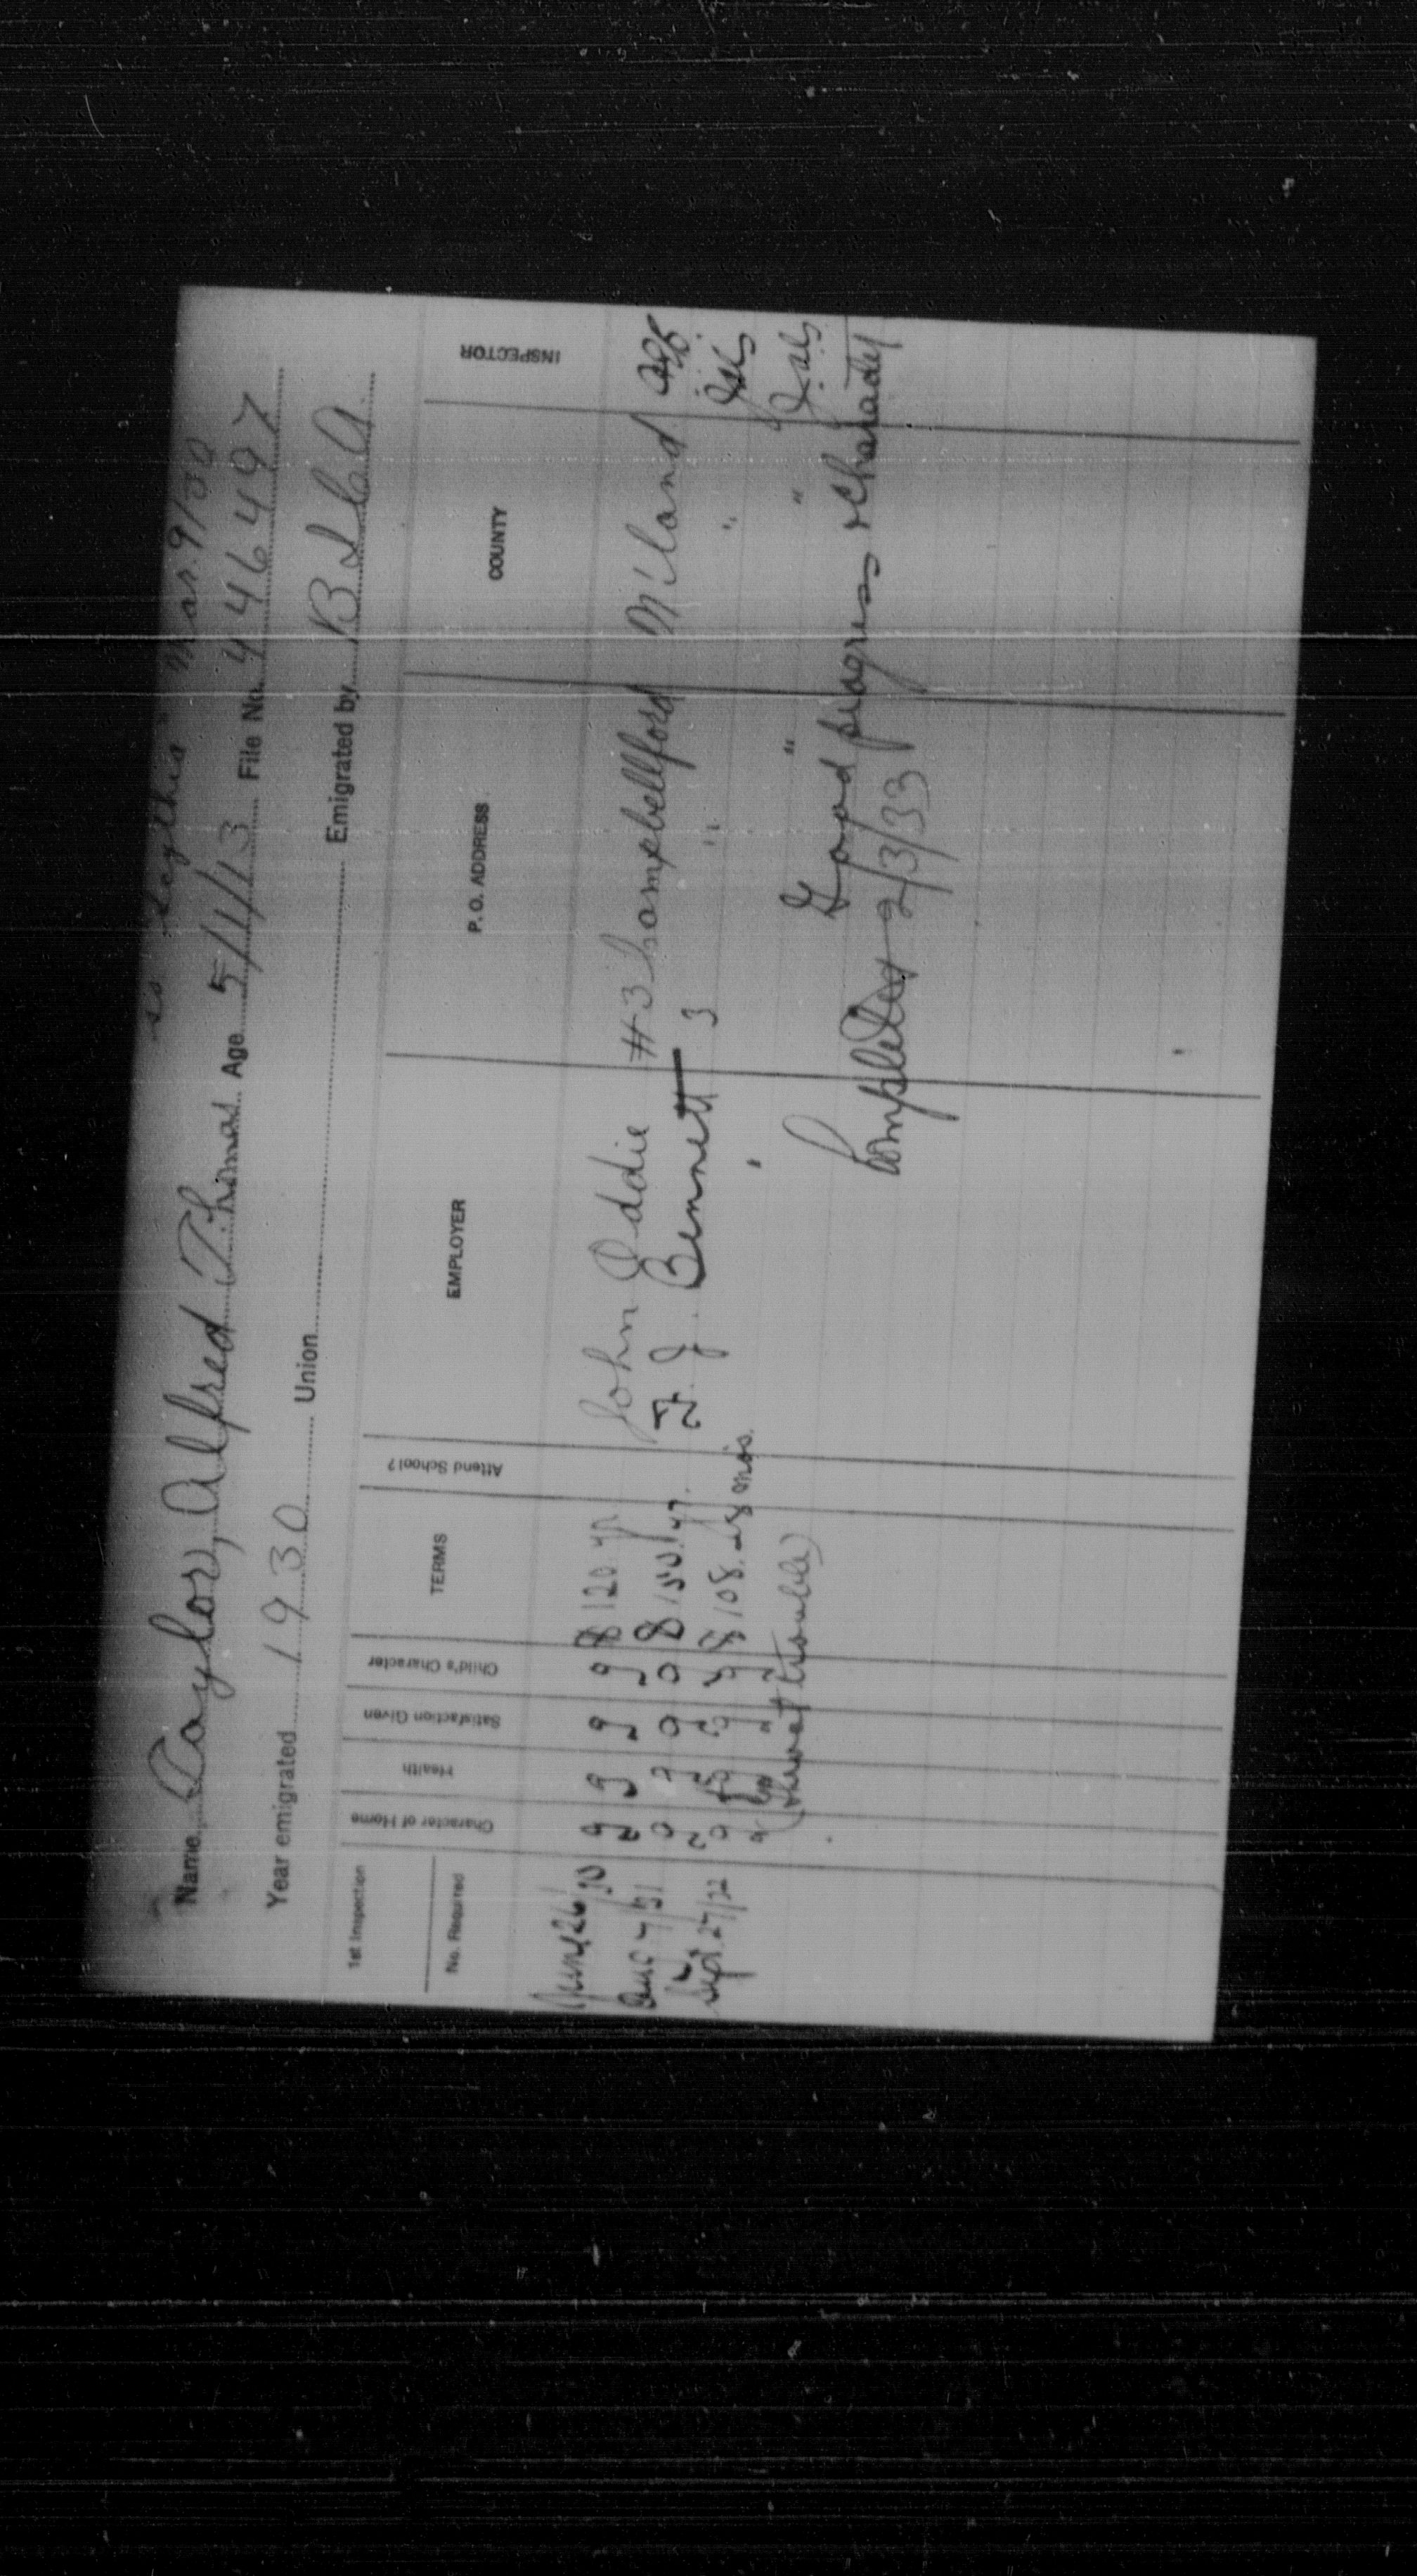 ss Scythia Mar. 9/30
Name Taylor, Alfred Thomas Age 5/1/13 File No. 446497
Year emigrated 1930 Union Emigrated by B I C A
1st Inspection
No. Required
Character of Home
Health
Satisfaction Given
Child's Character
TERMS
Attend School?
EMPLOYER
P. O. ADDRESS
COUNTY
INSPECTOR
June 26/30 g g g g 8 120. yr John Eddie #3 Campbellford N'land
Aug 4/31 g g g g 8 150. yr. F. J. Bennett 3 " "
Sept 27/32 g g g 8 108. - 8 mos. " " "
(throat trouble) Good progress & character
Completed 2/3/33